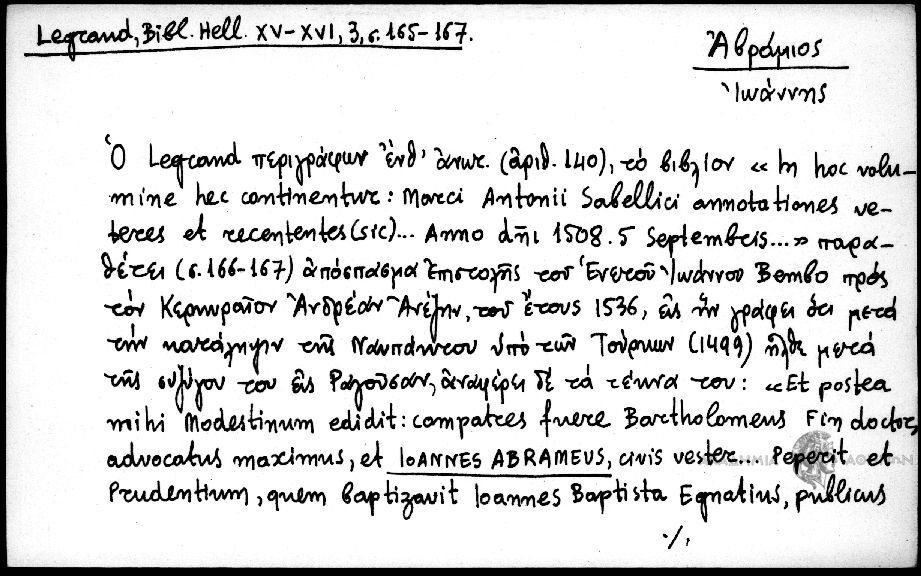 Legrand, Bibl. Hell. XV-XVI, 3, σ. 165-167.
Ἀβράμιος
Ἰωάννης
Ὁ Legrand περιγράφων ἐνθ' ἀνωτ. (ἀριθ. 140), τὸ βιβλίον «In hoc volu-
mine hec continentur: Marci Antonii Sabellici annotationes ve-
teres et recententes (sic)... Anno dñi 1508. 5 Septembris...» παρα-
θέτει (σ. 166-167) ἀπόσπασμα ἐπιστολῆς τοῦ Ἑνετοῦ Ἰωάννου Bembo πρὸς
τὸν Κερκυραῖον Ἀνδρέαν Ἀνέζην, τοῦ ἔτους 1536, εἰς ἣν γράφει ὅτι μετὰ
τὴν κατάληψιν τῆς Ναυπάκτου ὑπὸ τῶν Τούρκων (1499) ἦλθε μετὰ
τῆς συζύγου του εἰς Ραγοῦσαν, ἀναφέρει δὲ τὰ τέκνα του: «Et postea
mihi Modestinum edidit: compatres fuere Bartholomeus Fin doctor,
advocatus maximus, et IOANNES ABRAMEUS, civis vester... Peperit et
Prudentium, quem baptizavit Ioannes Baptista Egnatius, publicus
./.